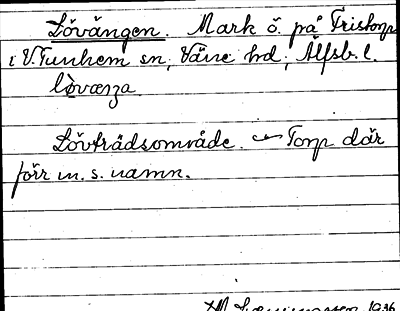 Lövängen. Mark ö. på Fristorp
i V. Tunhem sn, Väne hd; Älfsb. l.
Lövträdsområde. Torp där
förr m. s. namn.
1936